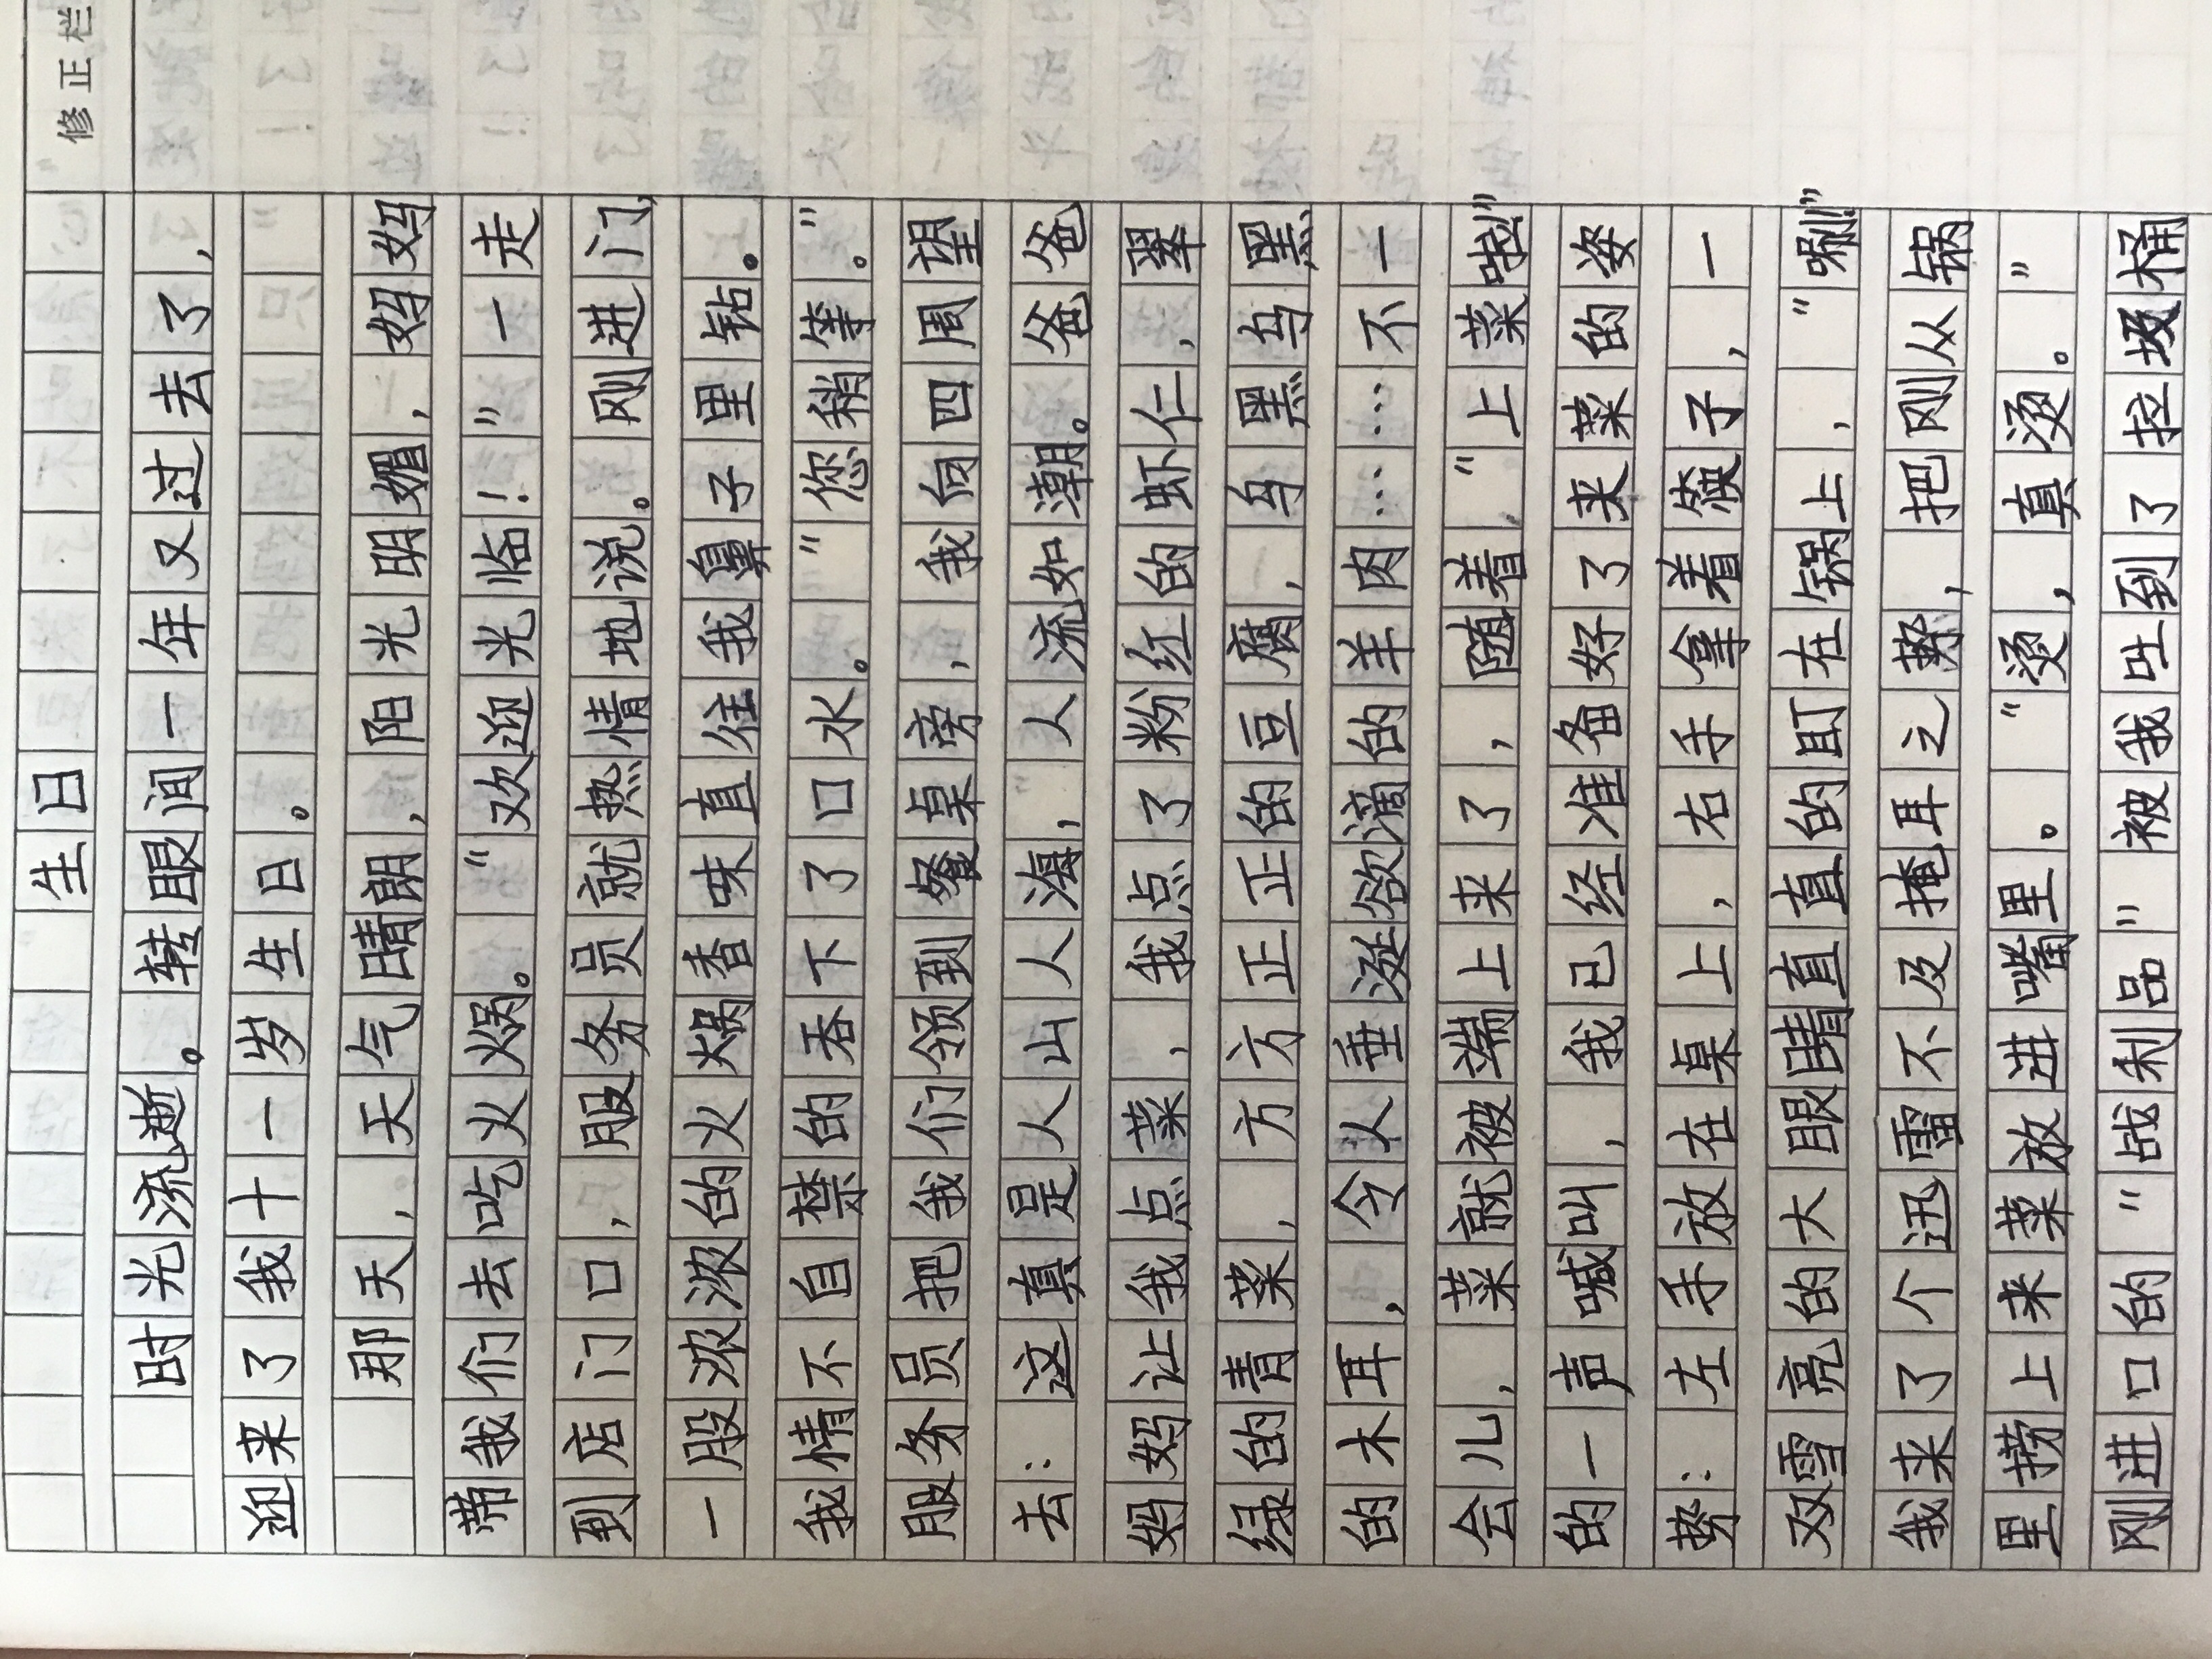 修正栏
生日
时光流逝。转眼间一年又过去了，
迎来了我十一岁生日。
那天，天气晴朗，阳光明媚，妈妈
带我们去吃火锅。“欢迎光临！”一走
到店门口，服务员就热情地说。刚进门，
一股浓浓的火锅香味直往我鼻子里钻。
我情不自禁的吞下了口水。“您稍等。”
服务员把我们领到餐桌旁，我向四周望
去：这真是人山人海，人流如潮。爸爸
妈妈让我点菜，我点了粉红的虾仁，翠
绿的青菜，方方正正的豆腐，乌黑乌黑
的木耳，令人垂涎欲滴的羊肉……不一
会儿，菜就被端上来了，随着“上菜啦！”
的一声喊叫，我已经准备好了来菜的姿
势：左手放在桌上，右手拿着筷子，一
双雪亮的大眼睛直直的盯在锅上，“唰！”
我来了个迅雷不及掩耳之势，把刚从锅
里捞上来菜放进嘴里。“烫，真烫。”
刚进口的“战利品”被我吐到了垃圾桶